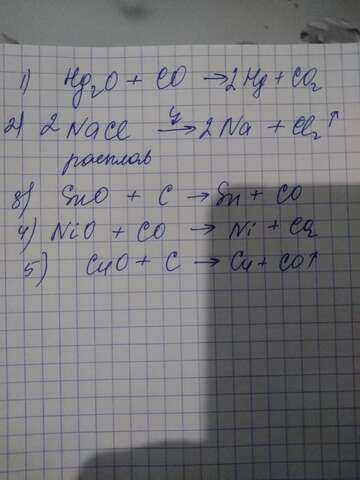 1) Hg₂O + CO → 2Hg + CO₂
2) 2NaCl → 2Na + Cl₂↑
расплав
3) SnO + C → Sn + CO
4) NiO + CO → Ni + CO₂
5) CuO + C → Cu + CO↑